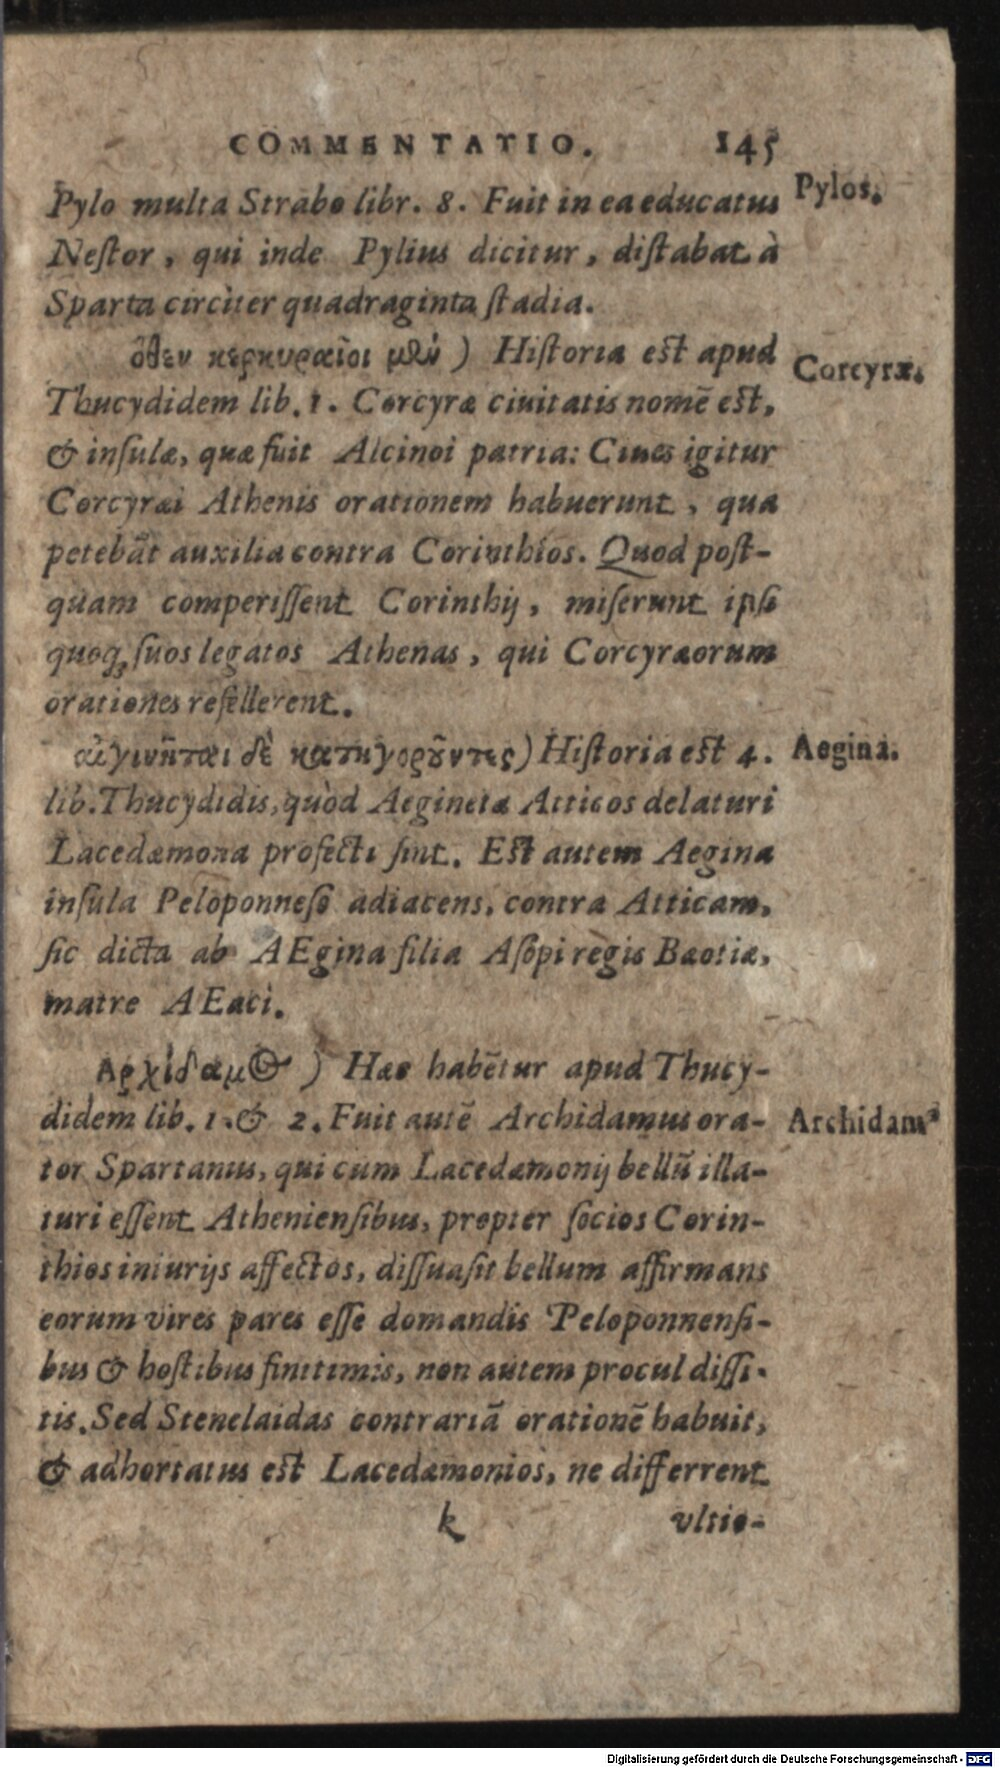 COMMENTATIO. 145
Pylo multa Strabo libr. 8. Fuit in ea educatus
Pylos.
Neſtor, qui inde Pylius dicitur, diſtabat à
Sparta circiter quadraginta ſtadia.
ὅθεν κερκυραῖοι μὲν ) Hiſtoria eſt apud
Corcyræ.
Thucydidem lib. 1. Corcyræ ciuitatis nomē eſt,
& inſulæ, quæ fuit Alcinoi patria: Ciues igitur
Corcyræi Athenis orationem habuerunt, qua
petebāt auxilia contra Corinthios. Quod poſt-
quam comperiſſent Corinthij, miſerunt ipſi
quoq; ſuos legatos Athenas, qui Corcyræorum
orationes refellerent.
αἰγινῆται δὲ κατηγοροῦντες) Hiſtoria eſt 4.
Aegina.
lib. Thucydidis, quòd Aeginetæ Atticos delaturi
Lacedæmona profecti ſint. Eſt autem Aegina
inſula Peloponneſo adiacens, contra Atticam,
ſic dicta ab AEgina filia Aſopi regis Bæotiæ,
matre AEaci.
Αρχίδαμος ) Hæc habētur apud Thucy-
didem lib. 1. & 2. Fuit autē Archidamus ora-
Archidamꝰ
tor Spartanus, qui cum Lacedæmonij bellū illa-
turi eſſent Athenienſibus, propter ſocios Corin-
thios iniurijs affectos, diſſuaſit bellum affirmans
eorum vires pares eſſe domandis Peloponnenſi-
bus & hoſtibus finitimis, non autem procul diſſi-
tis. Sed Stenelaidas contrariā orationē habuit,
& adhortatus eſt Lacedæmonios, ne differrent
k vltio-
Digitalisierung gefördert durch die Deutsche Forschungsgemeinschaft - DFG